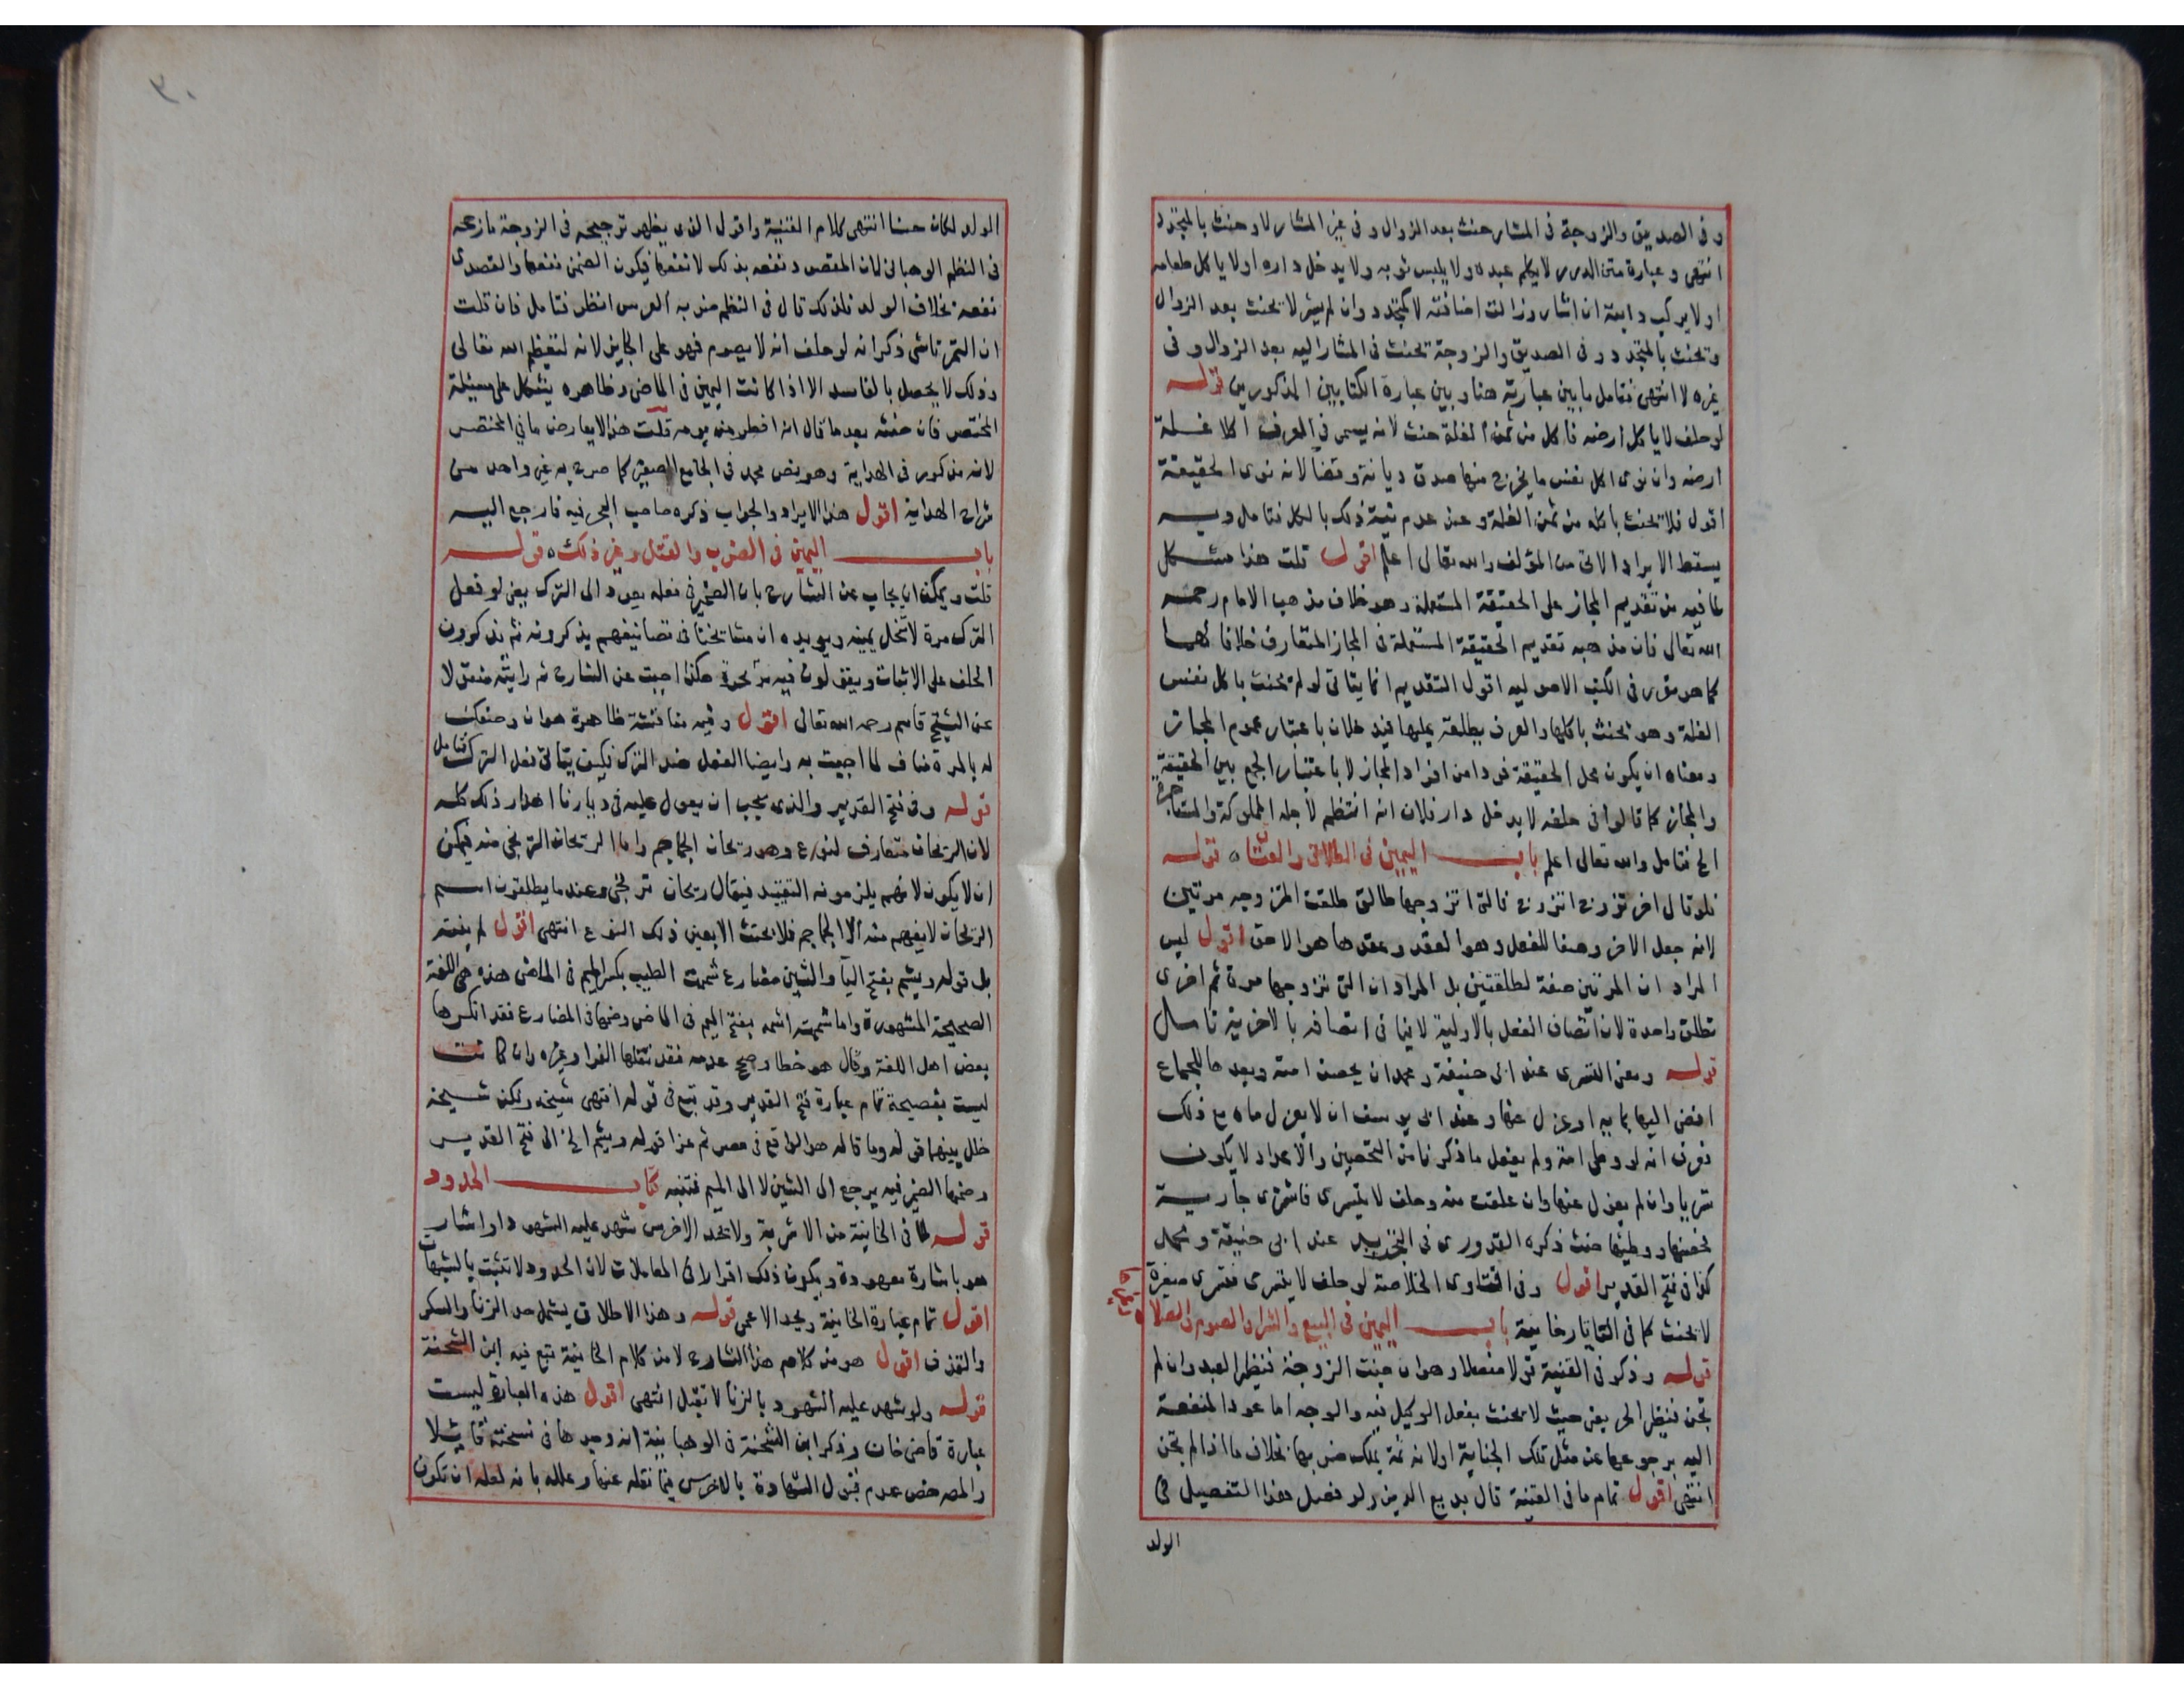 وفى الصديق والزوجة فى المشار حنث بعد الزوال وفى غير المشار لا وحنث بالمتجدد
انتهى وعبارة متن الدرر لا يكلم عبده ولا يلبس ثوبه ولا يدخل داره اولا ياكل طعامه
اولا يركب دابته ان اشار وزالت اضافته لا كمتجدد وان لم يشر لا يحنث بعد الزوال
وتحنث بالمتجدد وفى الصديق والزوجة تحنث فى المشار اليه بعد الزوال وفى
غيره لا انتهى فتامل ما بين عبارته هنا وبين عبارة الكتابين المذكورين قوله
لو حلف لا ياكل ارضه فاكل من ثمن الغلة حنث لانه يسمى فى العرف اكلا غلة
ارضه وان نوى اكل نفس ما يخرج منها صدق ديانة وقضا لانه نوى الحقيقة
اقول فلا تحنث باكله من ثمن الغلة وعند عدم نية ذلك بالكل فتامل وبه
يسقط الايراد الاتى من المؤلف والله تعالى اعلم اقول قلت هذا مشكل
لما فيه من تقديم المجاز على الحقيقة المستعملة وهو خلاف مذهب الامام رحمه
الله تعالى فان مذهبه تقديم الحقيقة المستعملة فى المجاز المتعارف خلافا لهما
كما هو مقرر فى الكتب الاصوليه اقول التقديم انما يتاتى لو لم تحنث باكل نفس
الغلة وهو تحنث باكلها والعرف يطلقه عليها فيدخلان باعتبار عموم المجاز
ومعناه ان يكون محل الحقيقة فردا من افراد المجاز لا باعتبار الجمع بين الحقيقة
والمجاز كما قالوا فى حلفه لا يدخل دار فلان انه انتظم لاجله المملوكة والمستاجرة
الخ فتامل والله تعالى اعلم باب اليمين فى الطلاق والعتاق قوله
فلو قال اخر تزوج اتزوج فالتى اتزوجها طالق طلقت المتزوجه مرتين
لانه جعل الاخر وصفا للفعل وهو العقد وعقدها هو الاحق اقول ليس
المراد ان المرتين صفة لطلقتين بل المراد ان التى تزوجها مرة ثم اخرى
تطلق واحدة لان اتصاف الفعل بالاولية لا ينافى اتصافه بالاخرية تامل
قوله ومعنى التسرى عند ابى حنيفة ومحمد ان يحصن امته ويعدها للجماع
افضى اليها بمايه او عزل عنها وعند ابى يوسف ان لا يعزل ماه مع ذلك
فعرف انه لو وطى امة ولم يفعل ما ذكرنا من التحصين والاعداد لا يكون
تسريا وان لم يعزل عنها وان علقت منه وحلف لا يتسرى فاشترى جارية
فحصنها ووطيها حنث ذكره القدورى فى التجريد عند ابى حنيفة ومحمد
كذا فى فتح القدير اقول وفى الفتاوى الخلاصة لو حلف لا يتسرى فتسرى صغيرة
لا يحنث كما فى التاتارخانية باب اليمين فى البيع والشرا والصوم والصلا
قوله وذكر فى القنية قولا مفصلا وهو ان جنت الزوجة فنظير العبد وان لم
تجن فنظير الحر يعنى حيث لا يحنث بفعل الوكيل فيه والوجه اما عود المنفعة
اليه برجوعها عن مثل تلك الجناية اولانه ثمة يملك ضربها بخلاف ما اذا لم تجن
انتهى اقول تمام ما فى القنية قال بديع الدين ولو فصل هذا التفصيل فى
الولد
٣٠
الولد لكان حسنا انتهى كلام القنية واقول الذى يظهر ترجيحه فى الزوجة ما زعمه
فى النظم الوهبانى لان المقصود نفعه بذلك لا نفعها فيكون الضمنى نفعها والقصدى
نفعه بخلاف الولد فلذلك قال فى النظم ضربه العرس انظر فتامل فان قلت
ان التمرتاشى ذكر انه لو حلف انه لا يصوم فهو على الجايز لانه لتعظيم الله تعالى
وذلك لا يحصل بالفاسد الا اذا كانت اليمين فى الماضى وظاهره يشكل على مسئلة
المختصر فان حنثه بعد ما قال انه افطر من يومه قلت هذا لا يعارض ما فى المختصر
لانه مذكور فى الهداية وهو نص محمد فى الجامع الصغير كما صرح به غير واحد من
شراح الهداية اقول هذا الايراد والجواب ذكره صاحب البحر فيه فارجع اليه
باب اليمين فى الضرب والقتل وغير ذلك قوله
قلت ويمكن ان يجاب عن الشارح بان الضمير فى فعله يعود الى الترك يعنى لو فعل
الترك مرة لا تنحل يمينه ويويده ان مشايخنا فى تصانيفهم يذكرونه ثم يذكرون
الحلف على الاثبات ويقولون فيه بر بمرة هكذا اجبت عن الشارح ثم رايته منقولا
عن الشيخ قاسم رحمه الله تعالى اقول وفيه مناقشة ظاهرة هو ان وصفك
له بالمرة مناف لما اجبت به وايضا الفعل ضد الترك فكيف يتاتى فعل الترك فتامل
قوله وفى فتح القدير والذى يجب ان يعول عليه فى ديارنا اهدار ذلك كله
لان الريحان متعارف لنوع وهو ريحان الجماجم واما الريحان الترنجى منه فيمكن
ان لا يكون لانهم يلزمونه التقييد فيقال ريحان ترنجى وعندما يطلقون اسم
الريحان لا يفهم منه الا الجماجم فلا يحنث الا بعين ذلك النوع انتهى اقول لم يفته
بل قوله ويشم بفتح اليا والشين مضارع شممت الطيب بكسر الميم فى الماضى هذه هى اللغة
الصحيحة المشهورة واما شممته اشمه بفتح الميم فى الماضى وضمها فى المضارع فقد انكرها
بعض اهل اللغة وقال هو خطا وصحح عدمه فقد نقلها الفرا وغيره وان كانت
ليست بفصيحة تمام عبارة فتح القدير وقد تبع فى قوله انتهى شيخه ولكن شيخه
خلل بينهما قوله وما قاله هو الواقع فى مصر ثم عزا قوله ويشم الخ الى فتح القدير
وضمها الضمير فيه يرجع الى الشين لا الى الميم فتنبه كتاب الحدود
قوله لما فى الخانية من الاشربة ولا تحد الاخرس شهد عليه الشهود او اشار
هو باشارة معهودة ويكون ذلك اقرارا فى المعاملات لان الحدود لا تثبت بالشبهات
اقول تمام عبارة الخانية ويحد الاعمى قوله وهذا الاطلاق يشمل حد الزنا والسكر
والقذف اقول هو من كلام هذا الشارح لا من كلام الخانية تبع فيه ابن الشحنة
قوله ولو شهد عليه الشهود بالزنا لا تقبل انتهى اقول هذه العبارة ليست
عبارة قاضى خان وذكر ابن الشحنة فى الوهبانية انه وجدها فى نسخته قايلا
والمصرخص عدم قبول الشهادة بالاخرس فيما نقله عنها وعلله بانه لعله ان تكون